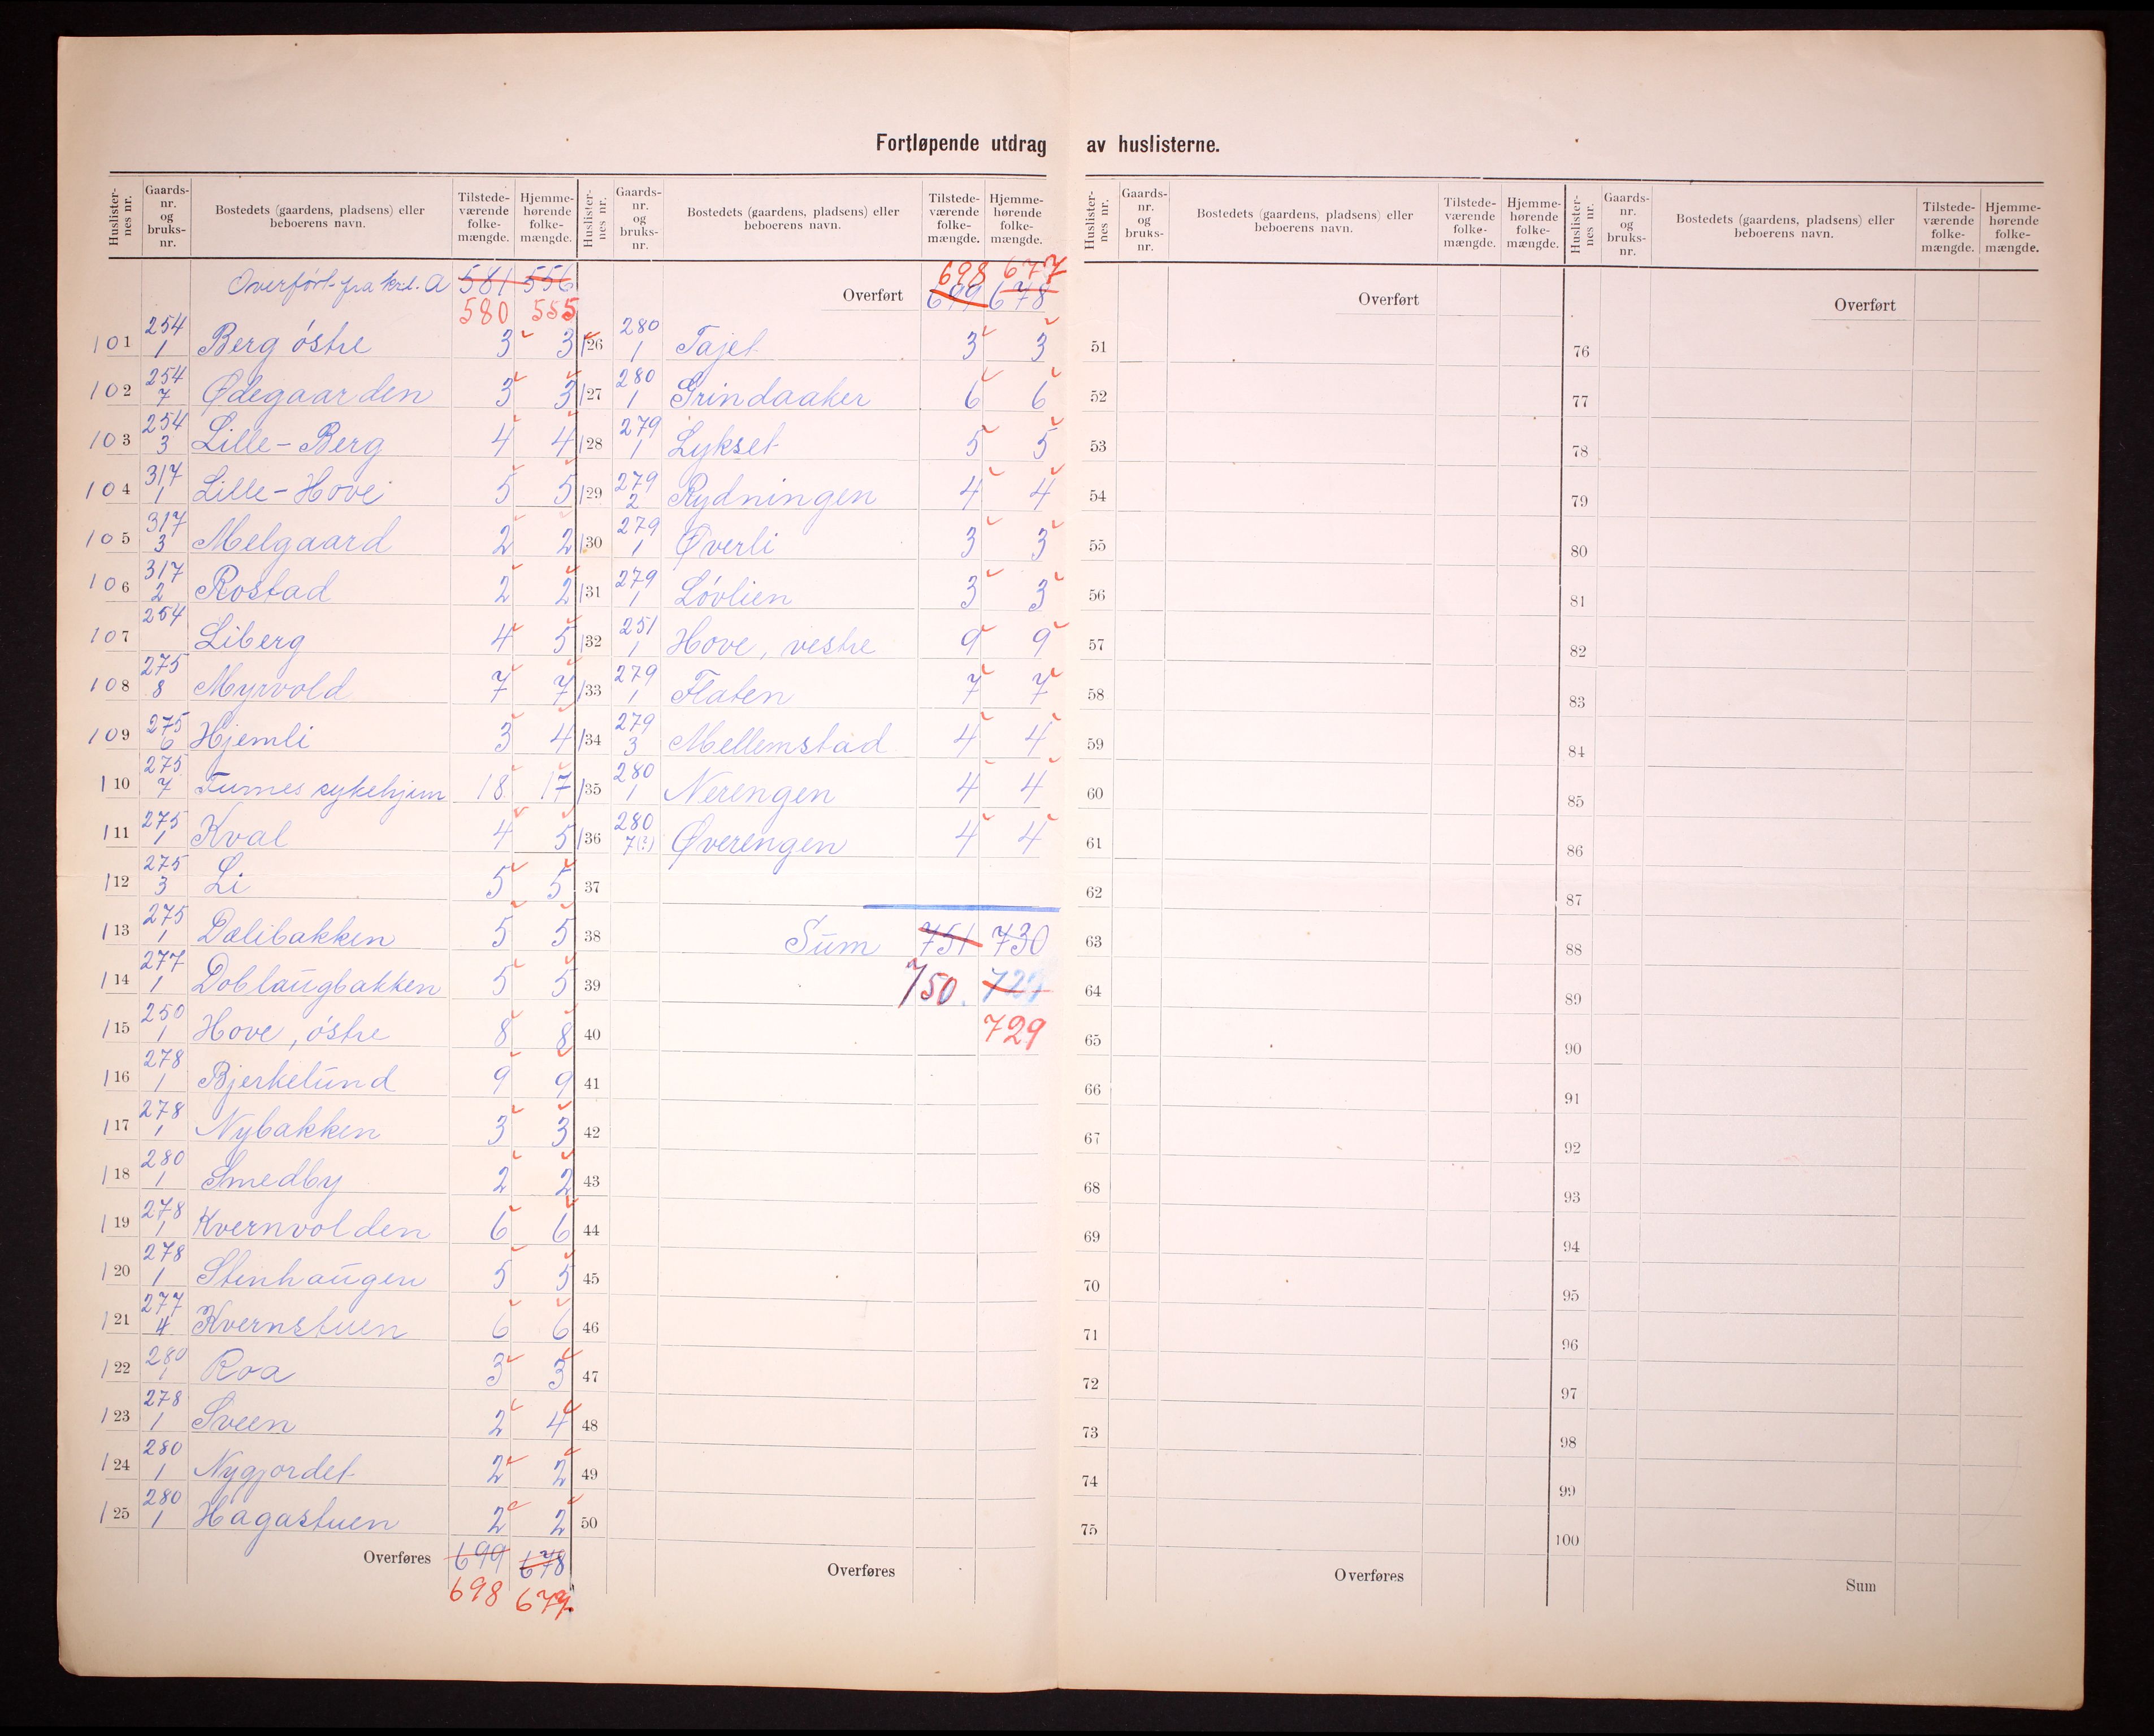 Fortløpende utdrag av huslisterne.
Huslisternes nr. Gaards-nr. og bruks-nr. Bostedets (gaardens, pladsens) eller beboerens navn. Tilstedeværende folkemængde. Hjemmehørende folkemængde.
Overført fra krd. A 581 556
580 555
101 254/1 Berg østre 3 3
102 254/7 Ødegaarden 3 3
103 254/3 Lille-Berg 4 4
104 317/1 Lille-Hove 5 5
105 317/3 Melgaard 2 2
106 317/2 Rostad 2 2
107 254 Liberg 4 5
108 275/8 Myrvold 7 7
109 275/6 Hjemli 3 4
110 275/7 Furnes sykehjem 18 17
111 275/1 Kval 4 5
112 275/3 Li 5 5
113 275/1 Dælibakken 5 5
114 277/1 Doblaugbakken 5 5
115 250/1 Hove, østre 8 8
116 278/1 Bjerkelund 9 9
117 278/1 Nybakken 3 3
118 280/1 Smedby 2 2
119 278/1 Kvernvolden 6 6
120 278/1 Stenhaugen 5 5
121 277/4 Kvernstuen 6 6
122 280/1 Roa 3 3
123 278/1 Sveen 2 4
124 280/1 Nygjordet 2 2
125 280/1 Hagastuen 2 2
Overføres 699 678
698 677.
Huslisternes nr. Gaards-nr. og bruks-nr. Bostedets (gaardens, pladsens) eller beboerens navn. Tilstedeværende folkemængde. Hjemmehørende folkemængde.
698 677
Overført 699 678
126 280/1 Tajet 3 3
127 280/1 Grindaaker 6 6
128 279/1 Lykset 5 5
129 279/2 Rydningen 4 4
130 279/1 Øverli 3 3
131 279/1 Løvlien 3 3
132 251/1 Hove, vestre 9 9
133 279/1 Flaten 7 7
134 279/3 Mellemstad 4 4
135 280/1 Nerengen 4 4
136 280/7(?) Øverengen 4 4
37
38 Sum 751 730
39 750. 727
40 729
41
42
43
44
45
46
47
48
49
50
Overføres
Huslisternes nr. Gaards-nr. og bruks-nr. Bostedets (gaardens, pladsens) eller beboerens navn. Tilstedeværende folkemængde. Hjemmehørende folkemængde.
Overført
51
52
53
54
55
56
57
58
59
60
61
62
63
64
65
66
67
68
69
70
71
72
73
74
75
Overføres
Huslisternes nr. Gaards-nr. og bruks-nr. Bostedets (gaardens, pladsens) eller beboerens navn. Tilstedeværende folkemængde. Hjemmehørende folkemængde.
Overført
76
77
78
79
80
81
82
83
84
85
86
87
88
89
90
91
92
93
94
95
96
97
98
99
100
Sum